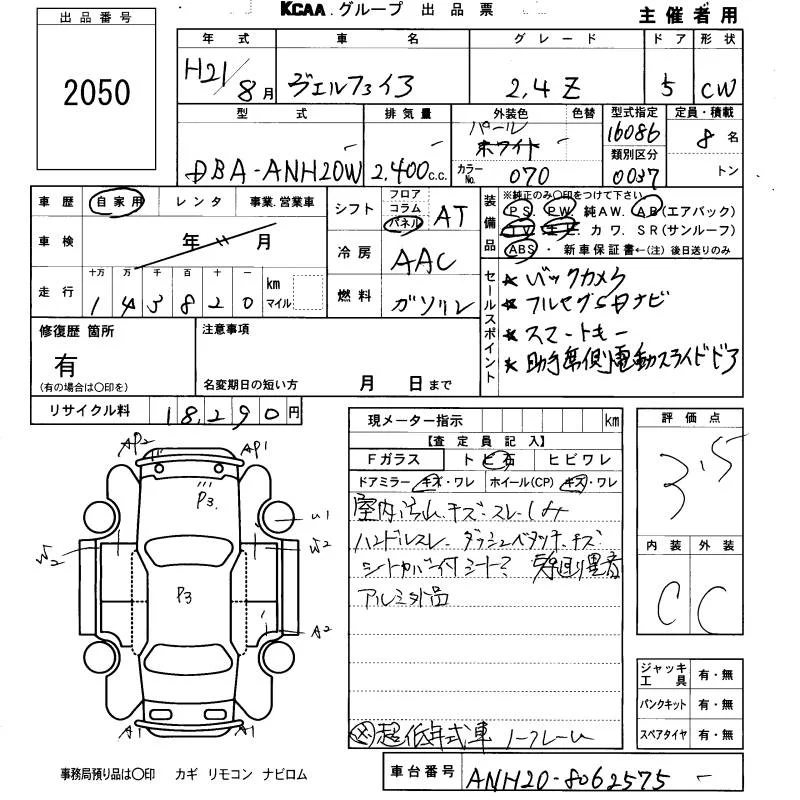 KCAA.グループ 出品票 主催者用
出品番号
2050
年式 車名 グレード ドア 形状
H21/8月 ヴェルファイア 2.4 Z 5 CW
型式 排気量 外装色 色替 型式指定 定員・積載
DBA-ANH20W 2,400c.c. パール ホワイト 16086 8名
カラーNo. 070 類別区分 0037 トン
車歴 自家用 レンタ 事業.営業車
シフト フロア コラム パネル AT
装備品 ※純正のみ○印をつけて下さい
PS. PW. 純AW. AB(エアバック)
TV. ナビ カワ. SR(サンルーフ)
ABS ・ 新車保証書←(注) 後日送りのみ
車検 年 月
冷房 AAC
走行 十万 万 千 百 十 一 km マイル
1 4 3 8 2 0
燃料 ガソリン
セールスポイント
★ バックカメラ
★ フルセグSDナビ
★ スマートキー
★ 助手席側電動スライドドア
修復歴 箇所
有
(有の場合は○印を)
注意事項
名変期日の短い方 月 日まで
リサイクル料 18,290円
現メーター指示 km
【査定員記入】
Fガラス ト ビ石 ヒビワレ
ドアミラー キズ・ワレ ホイール(CP) キズ・ワレ
室内汚れ.キズ.スレ.しみ
ハンドルスレ. ダッシュベタツキ.キズ
シートカバー付シート?
アルミ外品
超低年式車 ノークレーム
評価点
3.5
内装 外装
C C
ジャッキ工具 有・無
パンクキット 有・無
スペアタイヤ 有・無
AP2 AP1
P3.
U1
W2 W2
P3
A2
A1 A1
事務局預り品は○印 カギ リモコン ナビロム
車台番号 ANH20-8062575